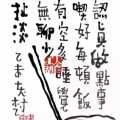 認真做點事
喫好每頓飯
有空多睡覺
無聊少
扯淡